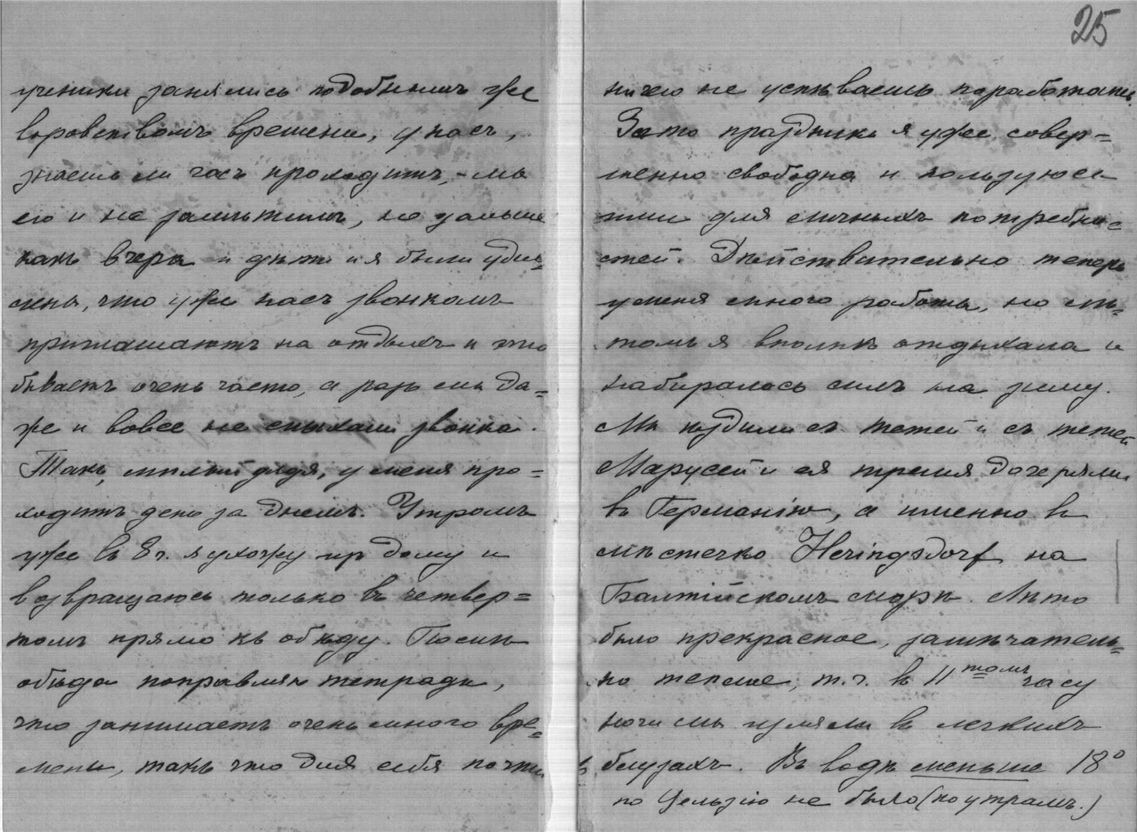 ученики занялись подобнымъ же
воровствомъ времени, у насъ,
знаешь ли часъ проходитъ, – мы
его и не замѣтимъ, не дальше
какъ вчера и дѣти и я были удив-
лены, что уже насъ звонкомъ
приглашаютъ на отдыхъ и это
бываетъ очень часто, а разъ мы да=
же и вовсе не слыхали звонка.
Такъ, милый дядя, у меня про=
ходитъ день за днемъ. Утромъ
уже въ 8 ч. я ухожу изъ дому и
возвращаюсь только въ четвер=
томъ прямо къ обѣду. Послѣ
обѣда поправляю тетради,
что занимаетъ очень много вре=
мени, такъ что для себя почти
25
ничего не успѣваешь поработать.
Зато праздники я уже совер=
шенно свободна и пользуюсь
ими для личныхъ потребно=
стей. Дѣйствительно теперь
у меня много работы, но лѣ-
томъ я вполнѣ отдыхала и
набиралась силъ на зиму.
Мы ѣздили съ тетей и съ тетей
Марусей и ея тремя дочерями
въ Германію, а именно въ
мѣстечко Heringsdorf на
Балтійскомъ морѣ. Лѣто
было прекрасное, замѣчатель=
но теплое, т.ч. въ 11томъ часу
ночи мы гуляли въ легкихъ
блузахъ. Въ водѣ меньше 18°
по Цельзію не было (по утрамъ.)